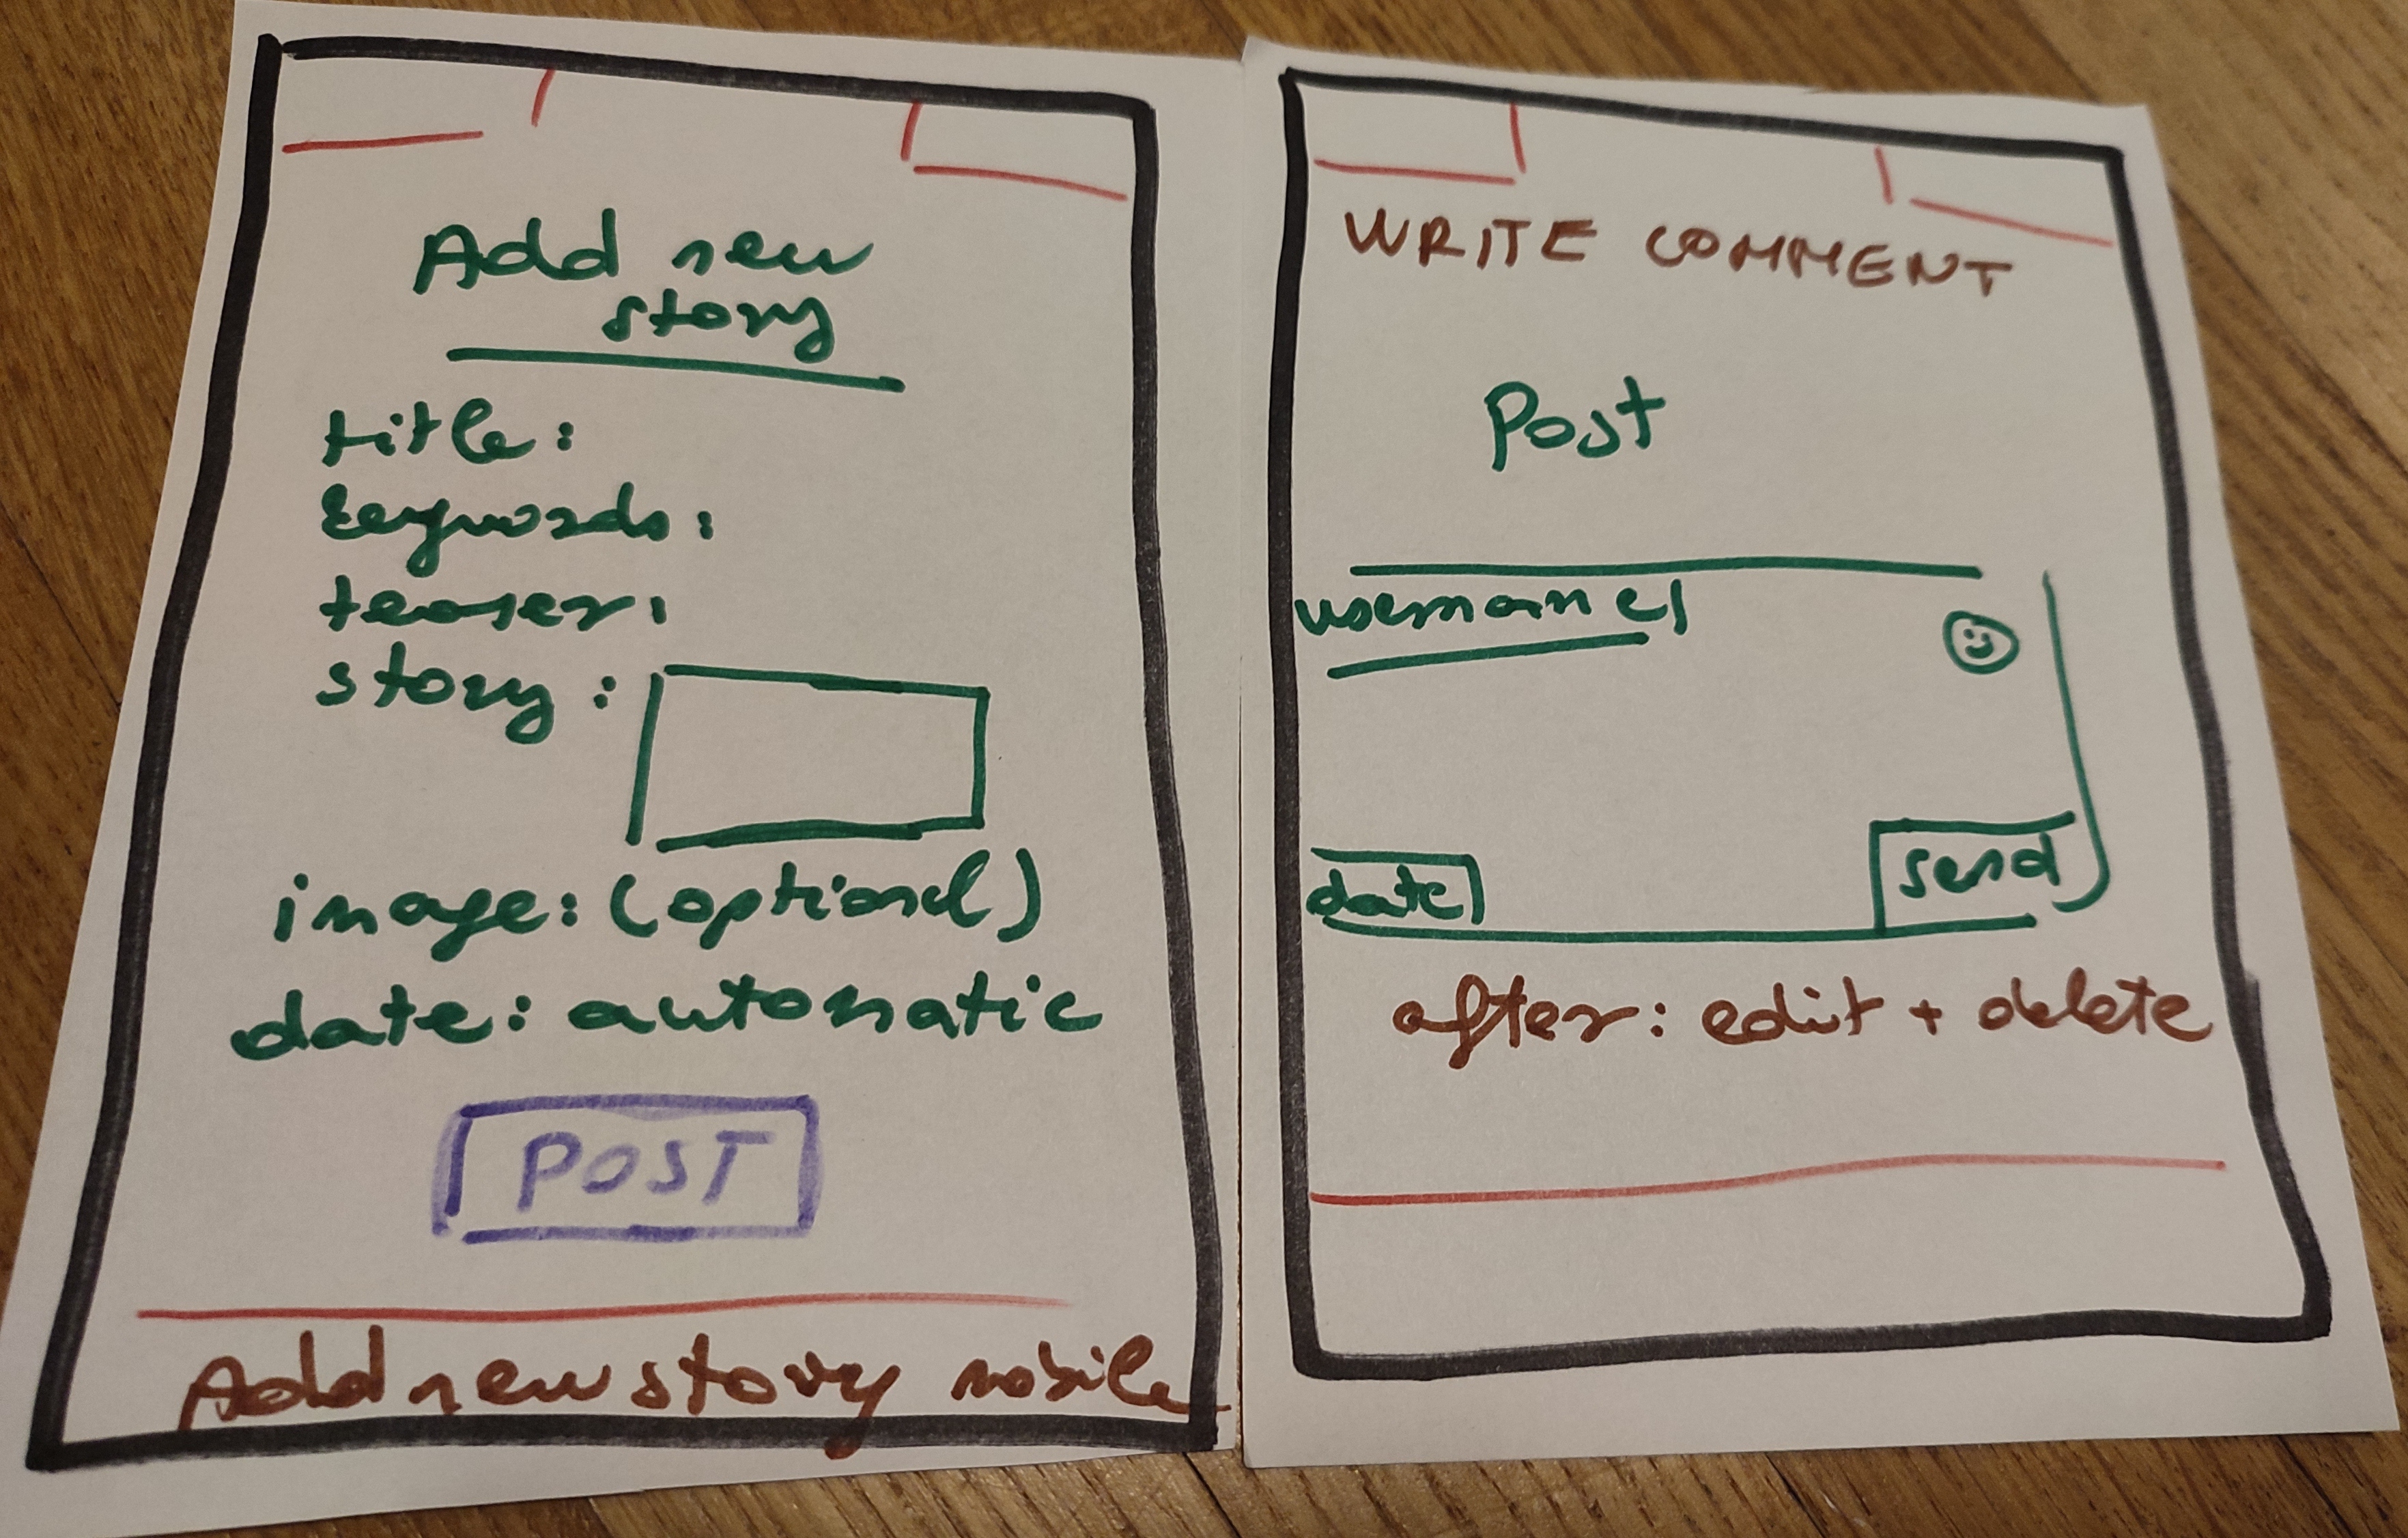 Add new
story
title:
keywords:
teaser:
story:
image: (optional)
date: automatic
POST
Add new story mobile
WRITE COMMENT
Post
username
date
send
after: edit + delete